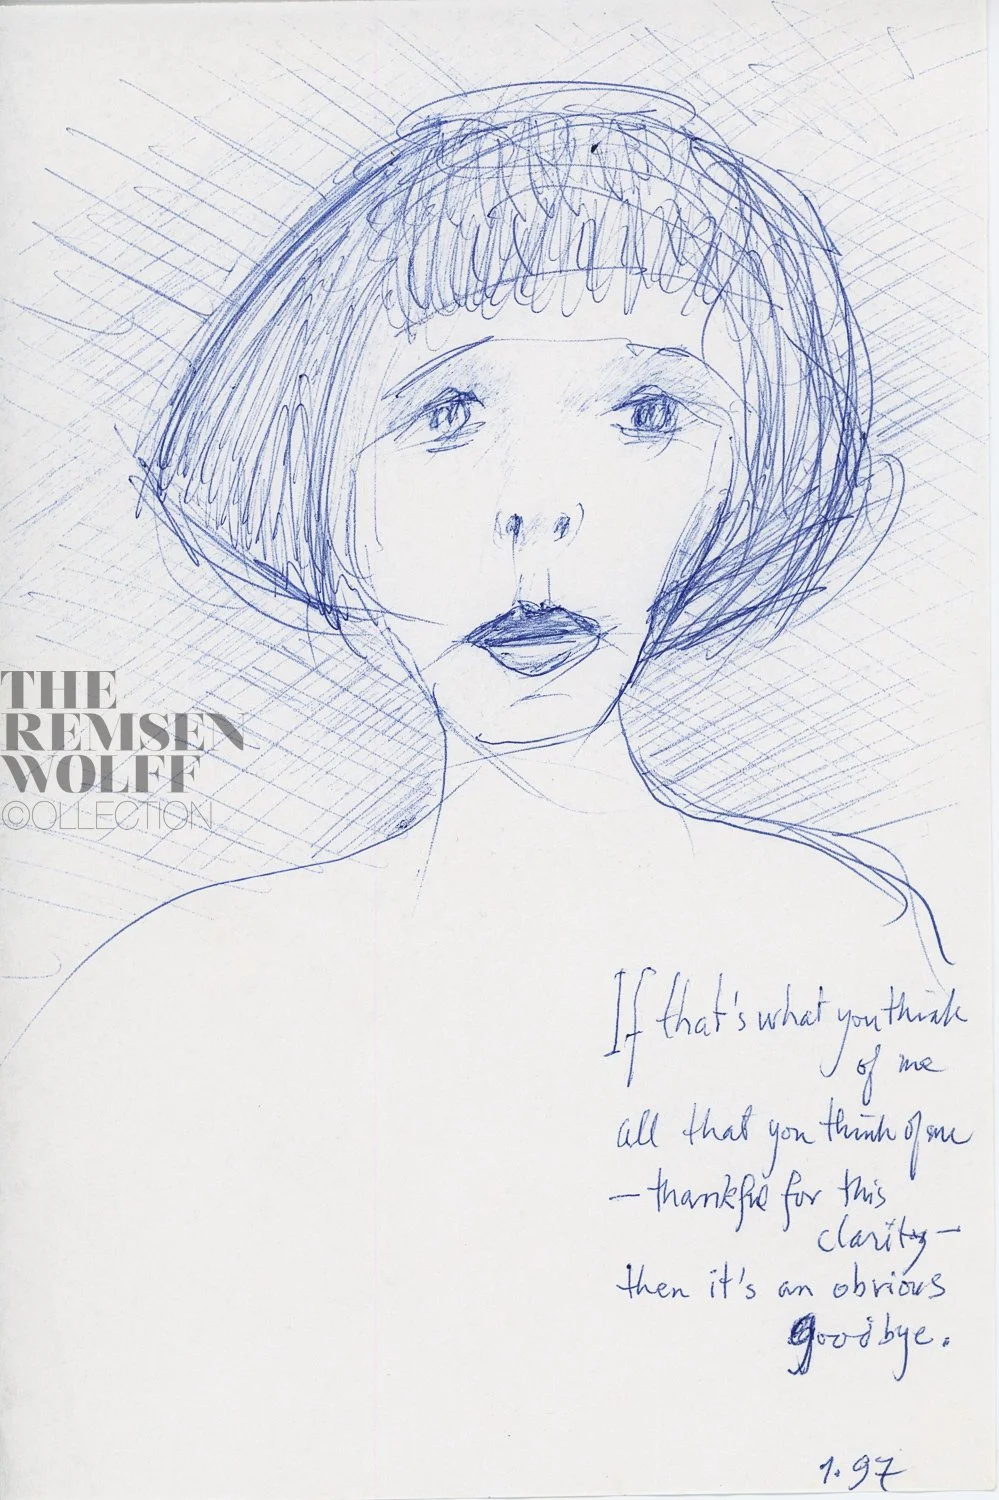 THE
REMSEN
WOLFF
©OLLECTION
If that's what you think
of me
all that you think of me
— thankful for this
clarity —
then it's an obvious
goodbye.
1.97